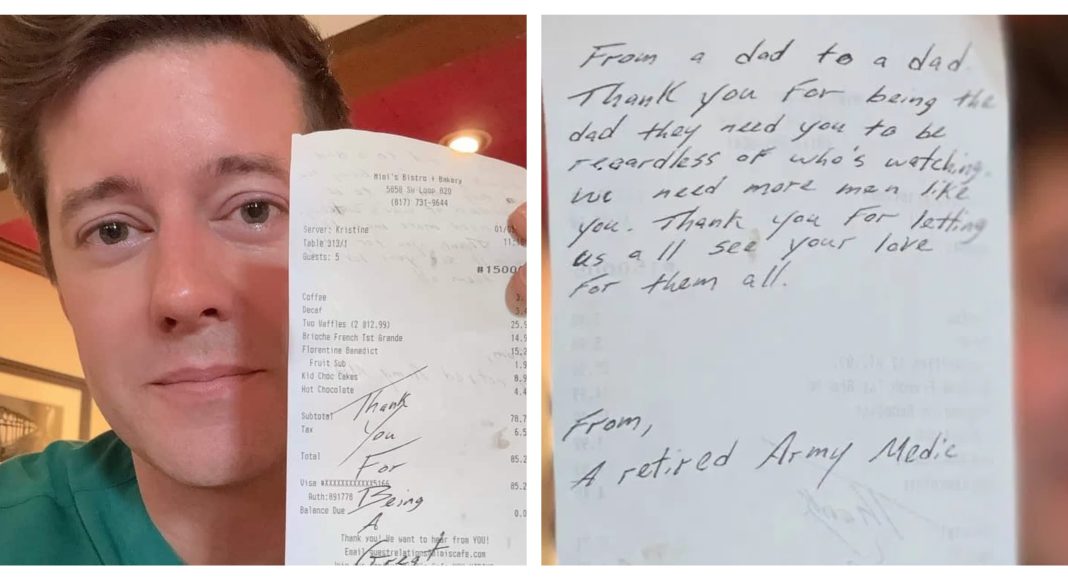 Mimi's Bistro + Bakery
5858 SW Loop 820
(817) 731-9644
Server: Kristine
01/0
Table 313/1
11:1
Guests: 5
#1500
Coffee
3.
Decaf
3.4
Two Waffles (2 @12.99)
25.9
Brioche French Tst Grande
14.9
Florentine Benedict
15.2
Fruit Sub
1.9
Kid Choc Cakes
8.9
Hot Chocolate
4.4
Subtotal
78.7
Tax
6.5
Total
85.2
Visa #XXXXXXXXXXXX5166
85.2
Auth:891778
Balance Due
0.0
Thank
You
For
Being
A
Great
Thank you! We want to hear from YOU!
Email guestrelations
cafe.com
From a dad to a dad.
Thank you For being the
dad they need you to be
regardless of who's watching.
we need more men like
you. Thank you For letting
us all see your love
For them all.
From,
A retired Army Medic